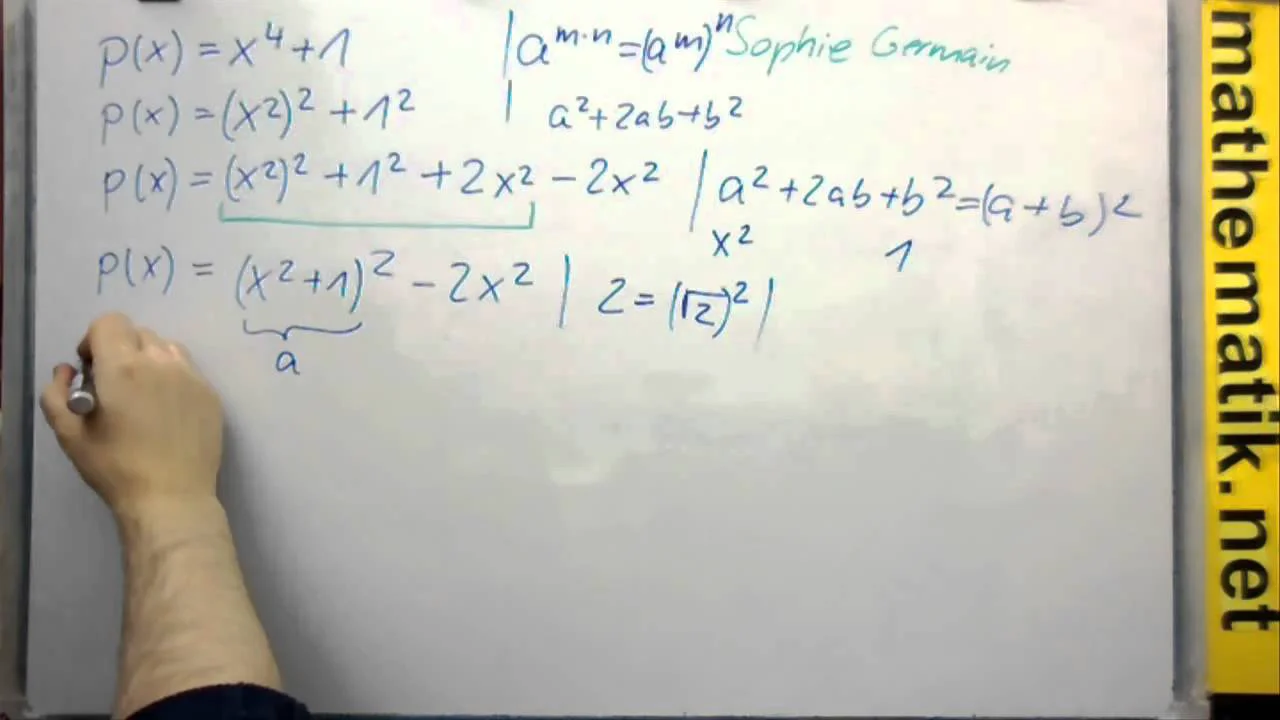 p(x) = x⁴ + 1 | a^(m·n) = (a^m)^n Sophie Germain
p(x) = (x²)² + 1² | a² + 2ab + b²
p(x) = (x²)² + 1² + 2x² − 2x² | a² + 2ab + b² = (a + b)²
x² 1
p(x) = (x² + 1)² − 2x² | 2 = (√2)² |
a
mathematik.net